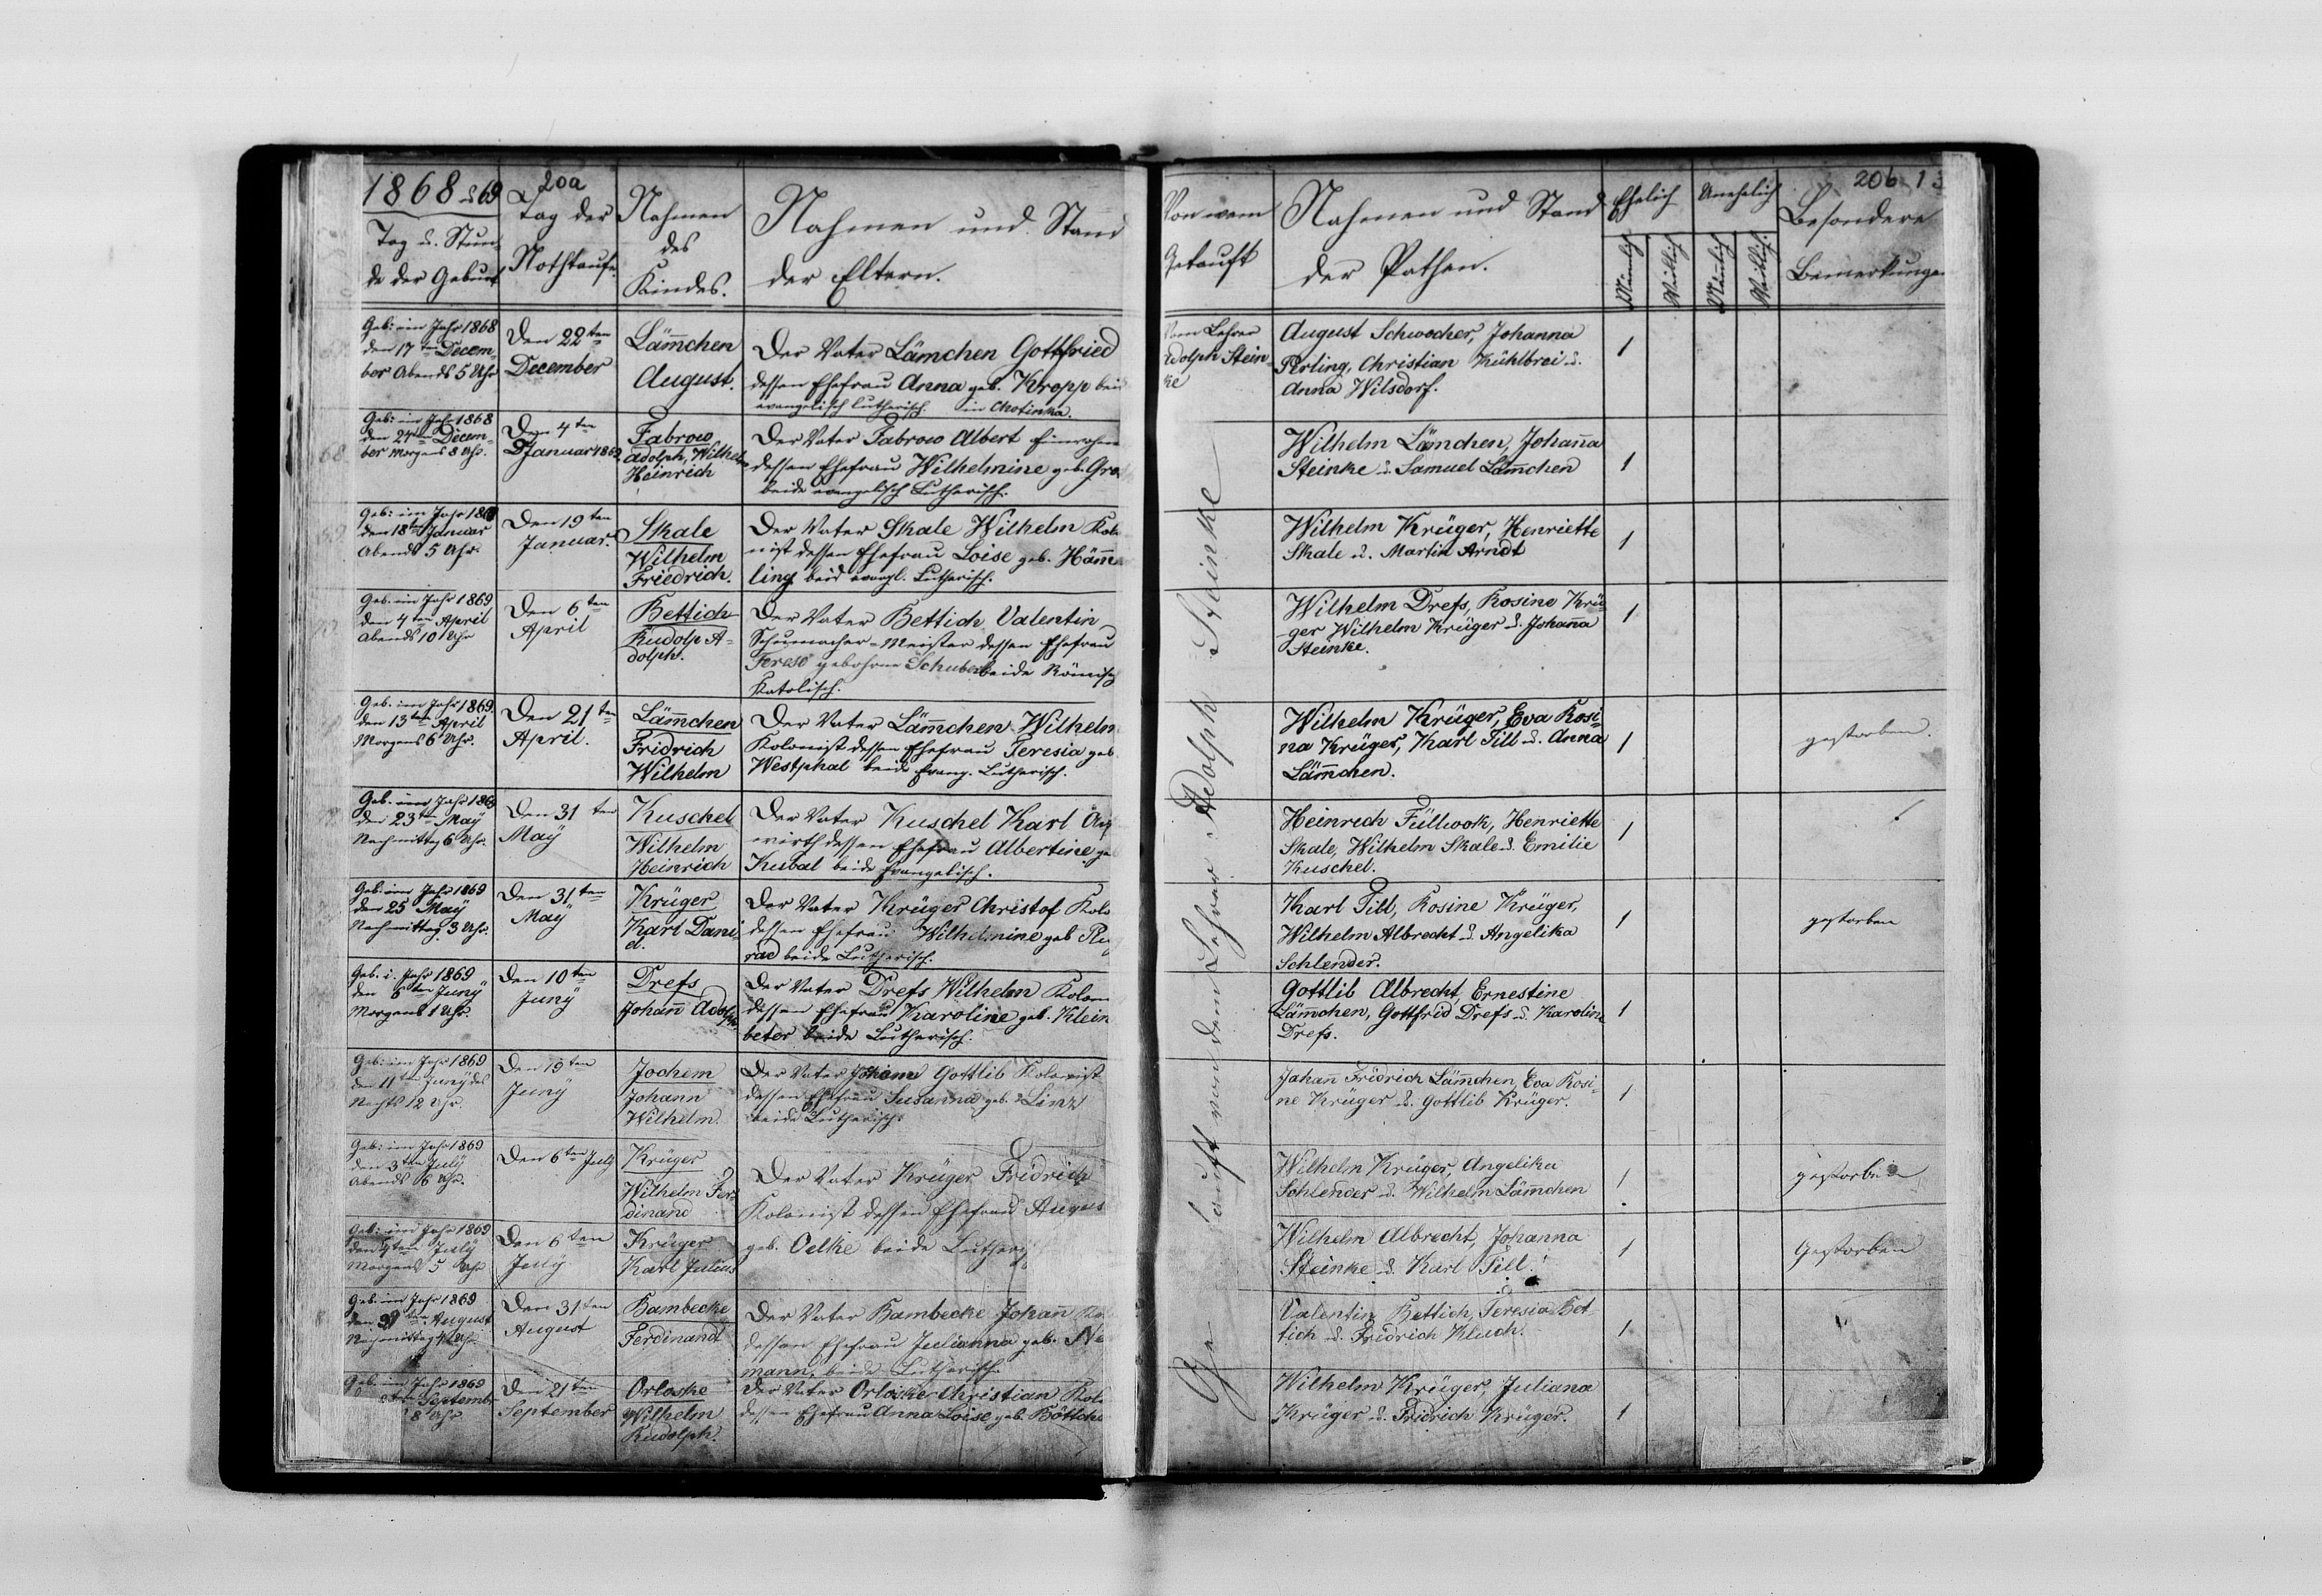 1868 u 69
20a
Tag u. Stun
de der Geburt
Tag der
Nothtaufe.
Nahmen
des
Kindes.
Nahmen und Stand
der Eltern.
Geb: im Jahr 1868
den 17ten Decem-
ber Abends 5 Uhr
Den 22ten
December
Läm̄chen
August.
Der Vater Lämchen Gottfried
dessen Ehefrau Anna geb. Kropp bei
evangelisch lutherisch. in Chotinka.
Geb: im Jahr 1868
den 24ten Decem-
ber Morgens 8 Uhr.
Den 4ten
Januar 1869
Fabrow
Adolph, Wilhelm
Heinrich
Der Vater Fabrow Albert Einwohn
dessen Ehefrau Wilhelmine geb. Gro
beide evangelisch Lutherisch.
Geb: im Jahr
den 18ten Januar
Abends 5 Uhr.
Den 19ten
Januar.
Skale
Wilhelm
Friedrich.
Der Vater Skale Wilhelm Kolo
nist dessen Ehefrau Loise geb. Häm̄
ling beid evangl. Lutherisch.
Geb. im Jahr 1869
den 4ten April
Abends 10 Uhr
Den 6ten
April
Bettich
Rudolp A-
dolph.
Der Vater Bettich Valentin
Schumacher-Meister dessen Ehefrau
Terese gebohrne Schubert beide Römisch
Katolisch.
Geb. im Jahr 1869.
den 13ten April
Morgens 6 Uhr.
Den 21ten
April.
Läm̄chen
Fridrich
Wilhelm
Der Vater Läm̄chen Wilhelm
Kolonist dessen Ehefrau Teresia geb
Westphal beide Evang. Lutherisch.
Geb. im Jahr 1869
den 23ten Maÿ
Nachmittag 6 Uhr.
Den 31ten
Maÿ
Kuschel
Wilhelm
Heinrich
Der Vater Kuschel Karl
wirth dessen Ehefrau Albertine ge
Kubal beide Evangelisch.
Geb: im Jahr 1869
den 25 Maÿ
Nachmittag 3 Uhr.
Den 31ten
Maÿ
Krüger
Karl Dani-
el.
Der Vater Krüger Christof Kolo
dessen Ehefrau Wilhelmine geb
rad beide Lutherisch.
Geb. i. Jahr 1869
den 6ten Junÿ
Morgens 1 Uhr.
Den 10ten
Junÿ
Drefs
Johan̄ Adolph
Der Vater Drefs Wilhelm Kolon
dessen Ehefrau Karoline geb. Klein
beter beide Lutherisch.
Geb: im Jahr 1869
den 11ten Junÿ des
Nachts 12 Uhr.
Den 19ten
Junÿ
Jochem
Johann
Wilhelm.
Der Vater Gottlib Kolonist
dessen Ehefrau Susanna geb. Linz
beide Lutherisch.
Geb: im Jahr 1869
den 3ten Julÿ
Abends 6 Uhr.
Den 6ten July
Krüger
Wilhelm Fer-
dinand
Der Vater Krüger Fridrich
Kolonist dessen Ehefrau Augus
Geb: im Jahr 1869
den 4ten Julÿ
Morgens 5 Uhr
Den 6ten
Julÿ
Krüger
Karl Julius
geb. Oelke beide Luther
Geb. im Jahr 1869
den August
Nachmittag 4 Uhr
Den 31ten
August
Bambecke
Ferdinandt
Der Vater Bambecke Johan̄ Ko
dessen Ehefrau Julianna geb. Ne
mann, beide Lutherisch.
Geb. im Jahr 1869
September
8 Uhr
Den 21ten
September
Orloske
Wilhelm
Rudolph.
Der Vater Orloske Christian Kolo
dessen Ehefrau Anna Loise geb. Böttche
20b 13
Von wem
Getauft
Nahmen und Stand
der Pathen.
Ehelich
Unehelich
Mänlich
Weiblich
Mänlich
Weiblich
Besondere
Bemerkungen
Vom Lehrer
Adolph Stein-
ke
Getauft von dem Lehrer Adolph Steinke
August Schwocher, Johanna
Perling, Christian Kühlbrei u.
Anna Wilsdorf.
1
Wilhelm Läm̄chen, Johan̄a
Steinke u. Samuel Läm̄chen
1
Wilhelm Krüger, Henriette
Skale u. Martin Arndt
1
Wilhelm Drefs, Rosine Krü-
ger Wilhelm Krüger u. Johan̄a
Steinke.
1
Wilhelm Krüger, Eva Rosi-
na Krüger, Karl Till u. Anna
Läm̄chen.
1
gestorben.
Heinrich Füllwook, Henriette
Skale, Wilhelm Skale u. Emilie
Kuschel.
1
Karl Till, Rosine Krüger,
Wilhelm Albrecht u. Angelika
Schlender.
1
gestorben
Gottlib Albrecht, Ernestine
Läm̄chen, Gottfrid Drefs u. Karoline
Drefs.
1
Johan̄ Fridrich Läm̄chen, Eva Rosi-
ne Krüger u. Gottlib Krüger.
1
Wilhelm Krüger, Angelika
Schlender u. Wilhelm Läm̄chen
1
gestorben
Wilhelm Albrecht, Johanna
Steinke u. Karl Till.
1
Gestorben
Valentin Bettich, Teresia Bet-
tich u. Fridrich Kluch.
1
Wilhelm Krüger, Juliana
Krüger u. Fridrich Krüger.
1